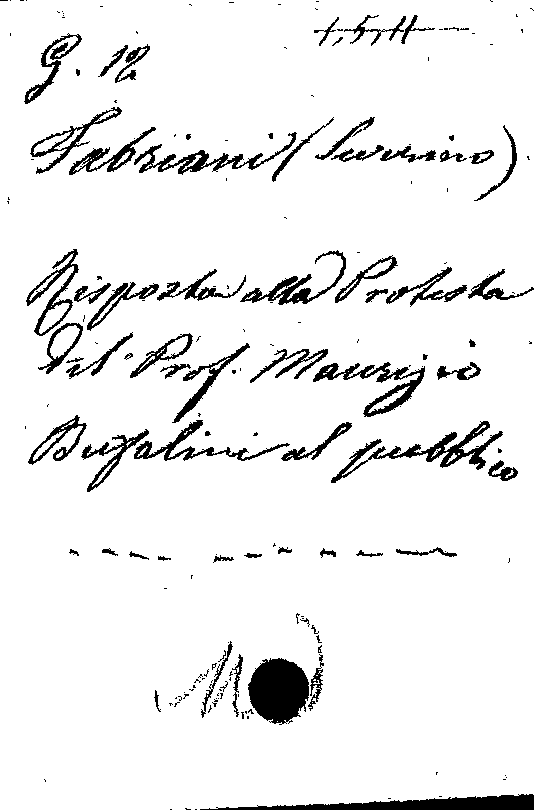 1, 5, 11
G. 12
Fabriani (Severino)
Risposta alla Protesta
del Prof. Maurizio
Bufalini al pubblico